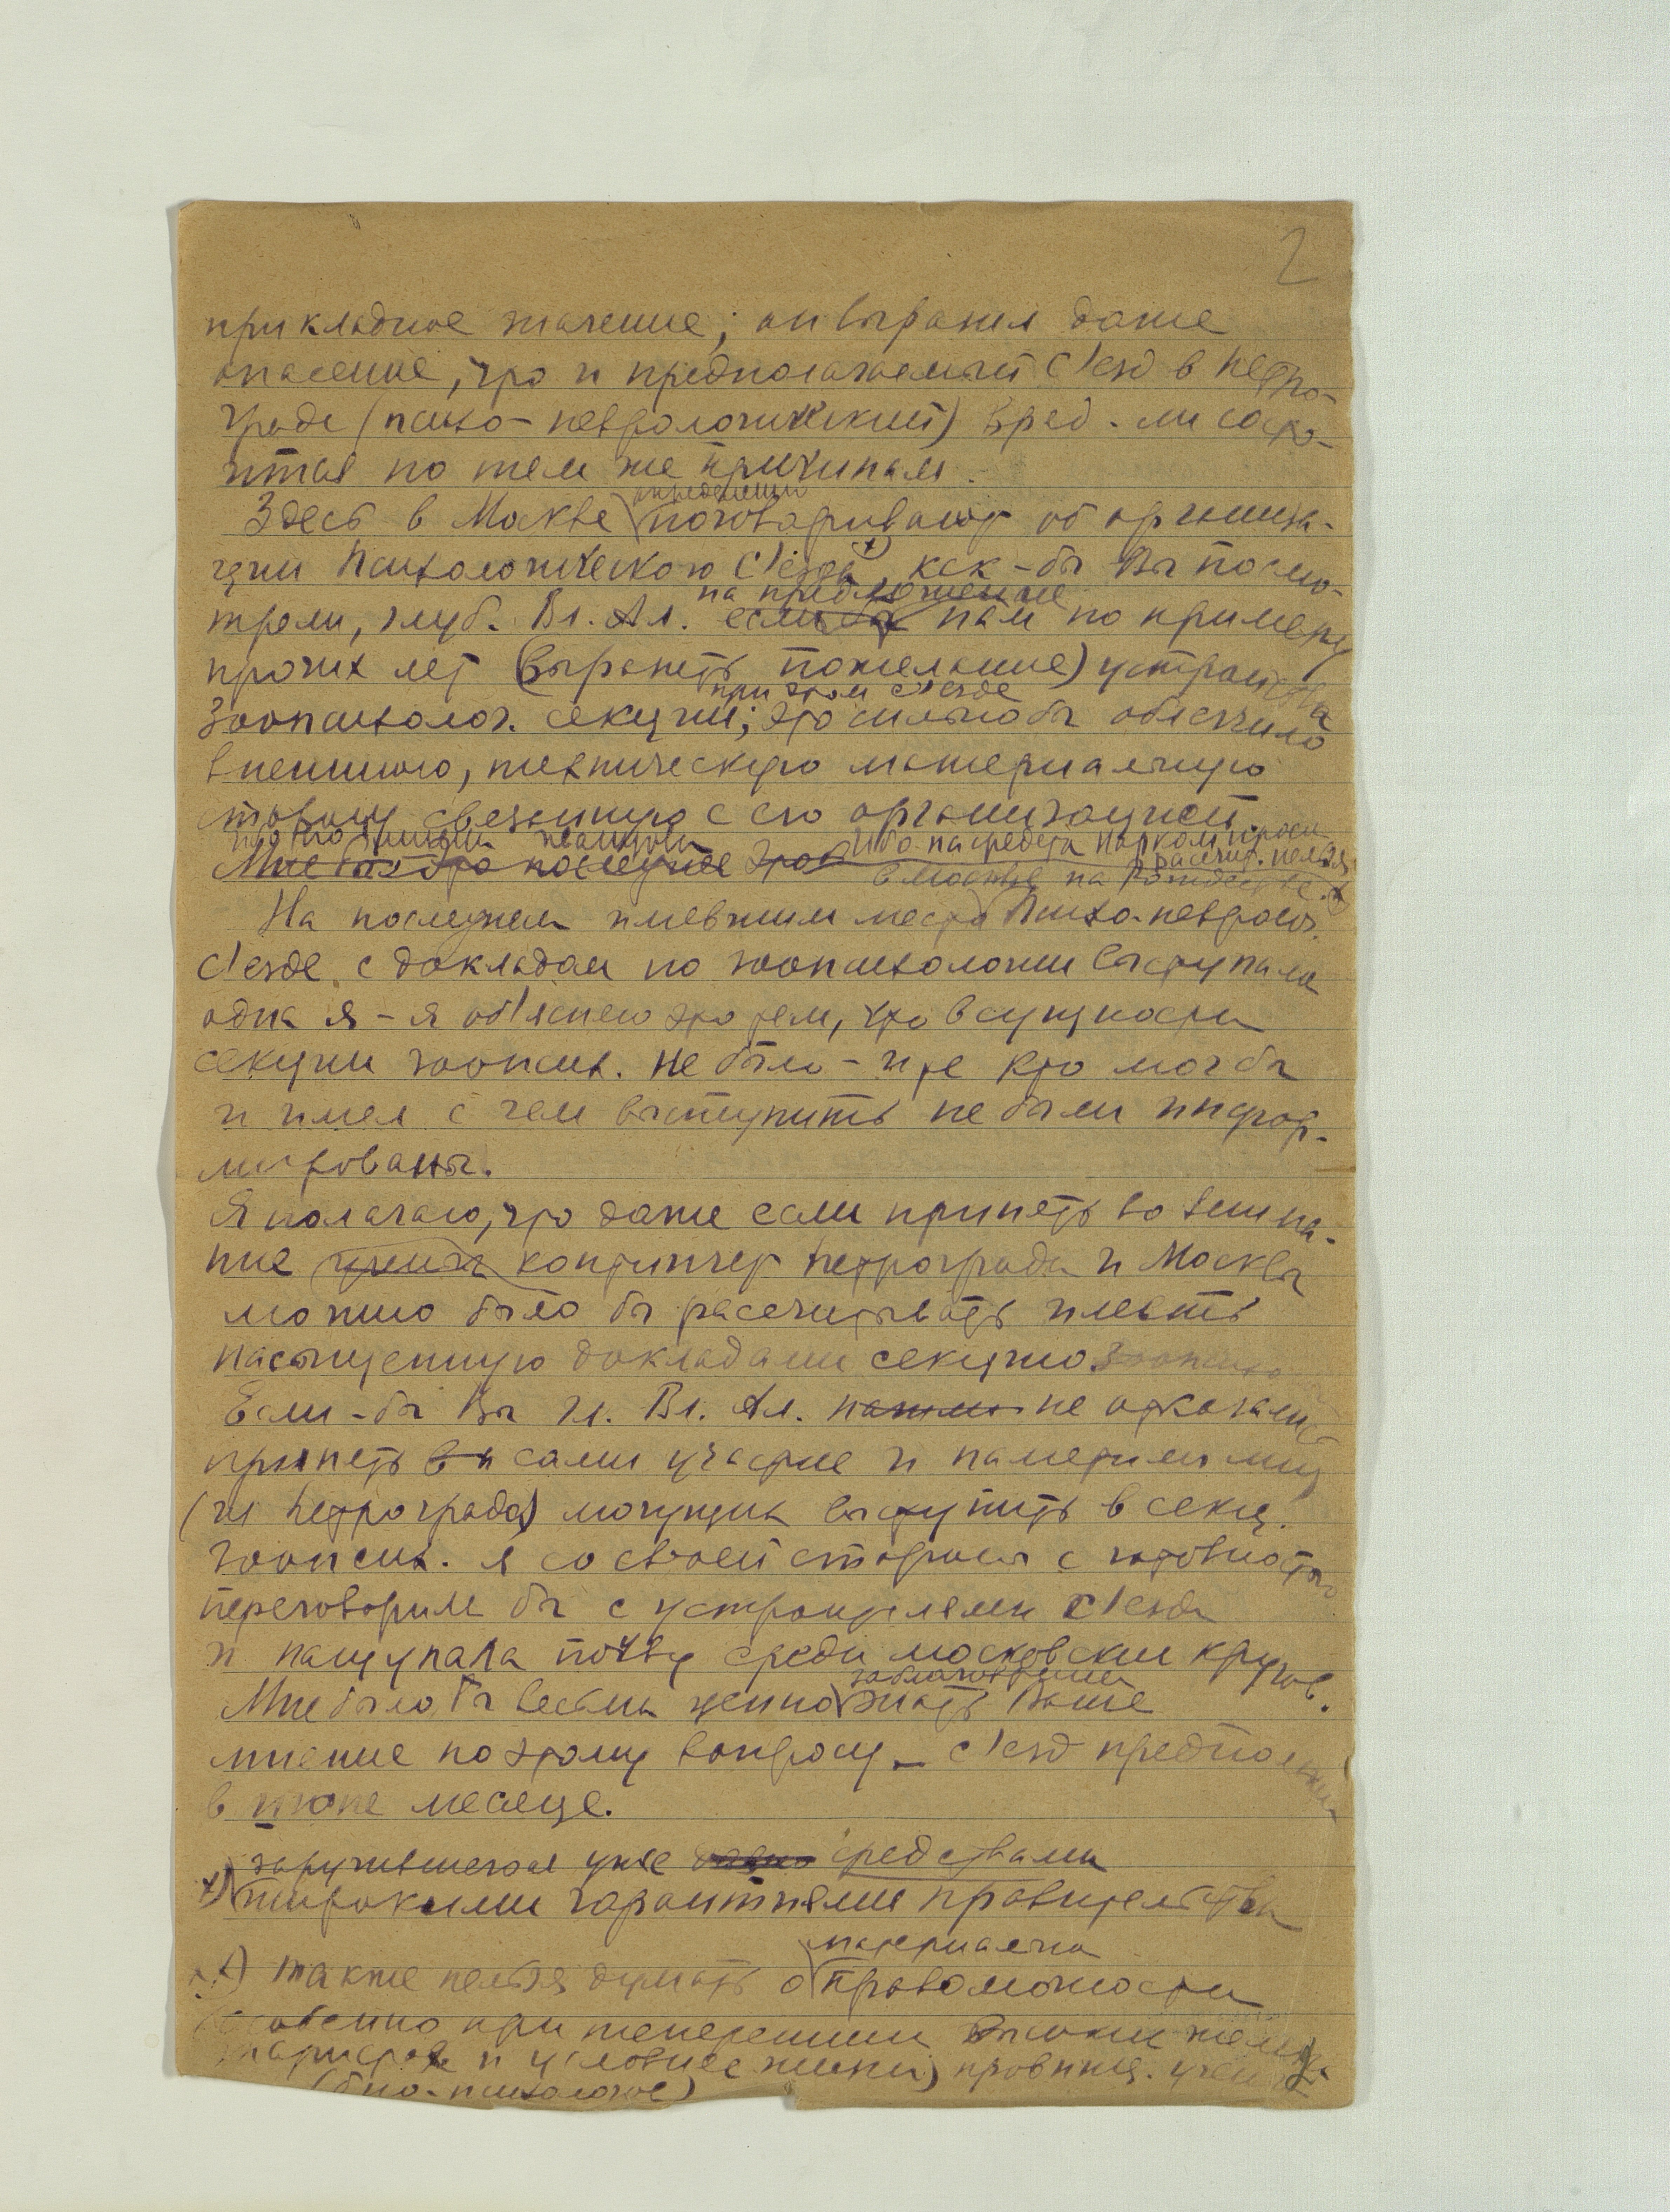 2
прикладное значение; он выразил даже
опасение, что и предполагаемый с'езд в Петро-
граде (психо-неврологический) вряд-ли состо-
ится по тем же причинам.
определенно
Здесь в Москве поговаривают об организа-
ции Психологического С'езда x) как-бы Вы посмо-
на предложение
трели, глуб. Вл. Ал. если бы нам по примеру
прочих лет (выразить пожелание) устройства
при этом с'езде
Зоопсихолог. секции; это сильно бы облегчило
внешнюю, техническую материальную
сторону связанную с его организацией
ибо на средства Наркомпроса
Мне это последнее
рассчит. нельзя
в Москве на Рождестве. x)
На последнем имевшим место Психо-невролог.
С'езде с докладом по зоопсихологии выступала
одна я - я об'ясняю это тем, что в сущности
секции зоопсих. не было - и те кто мог бы
и имел с чем выступить не были инфор-
мированы.
Я полагаю, что даже если принять во внима-
ние контингент Петрограда и Москвы
можно было бы рассчитывать иметь
насыщенную докладами секцию
Если-бы Вы гл. Вл. Ал. не отказались
принять сами участие и наметили лиц
(из Петрограда) могущих выступить в секц.
зоопсих. я со своей стороны с готовностью
переговорила бы с устроителями с'езда
и нащупала почву среди московских кругов.
заблаговременно
Мне было бы весьма ценно знать Ваше
мнение по этому вопросу - с'езд предположен
в июне месяце.
заручившегося уже средствами
x) широкими гарантиями правительства
материально
x) также нельзя думать о правомочности
особенно при теперешних высоких желез.
тарифах и условиях жизни) провинц. учен
(био-психологов)